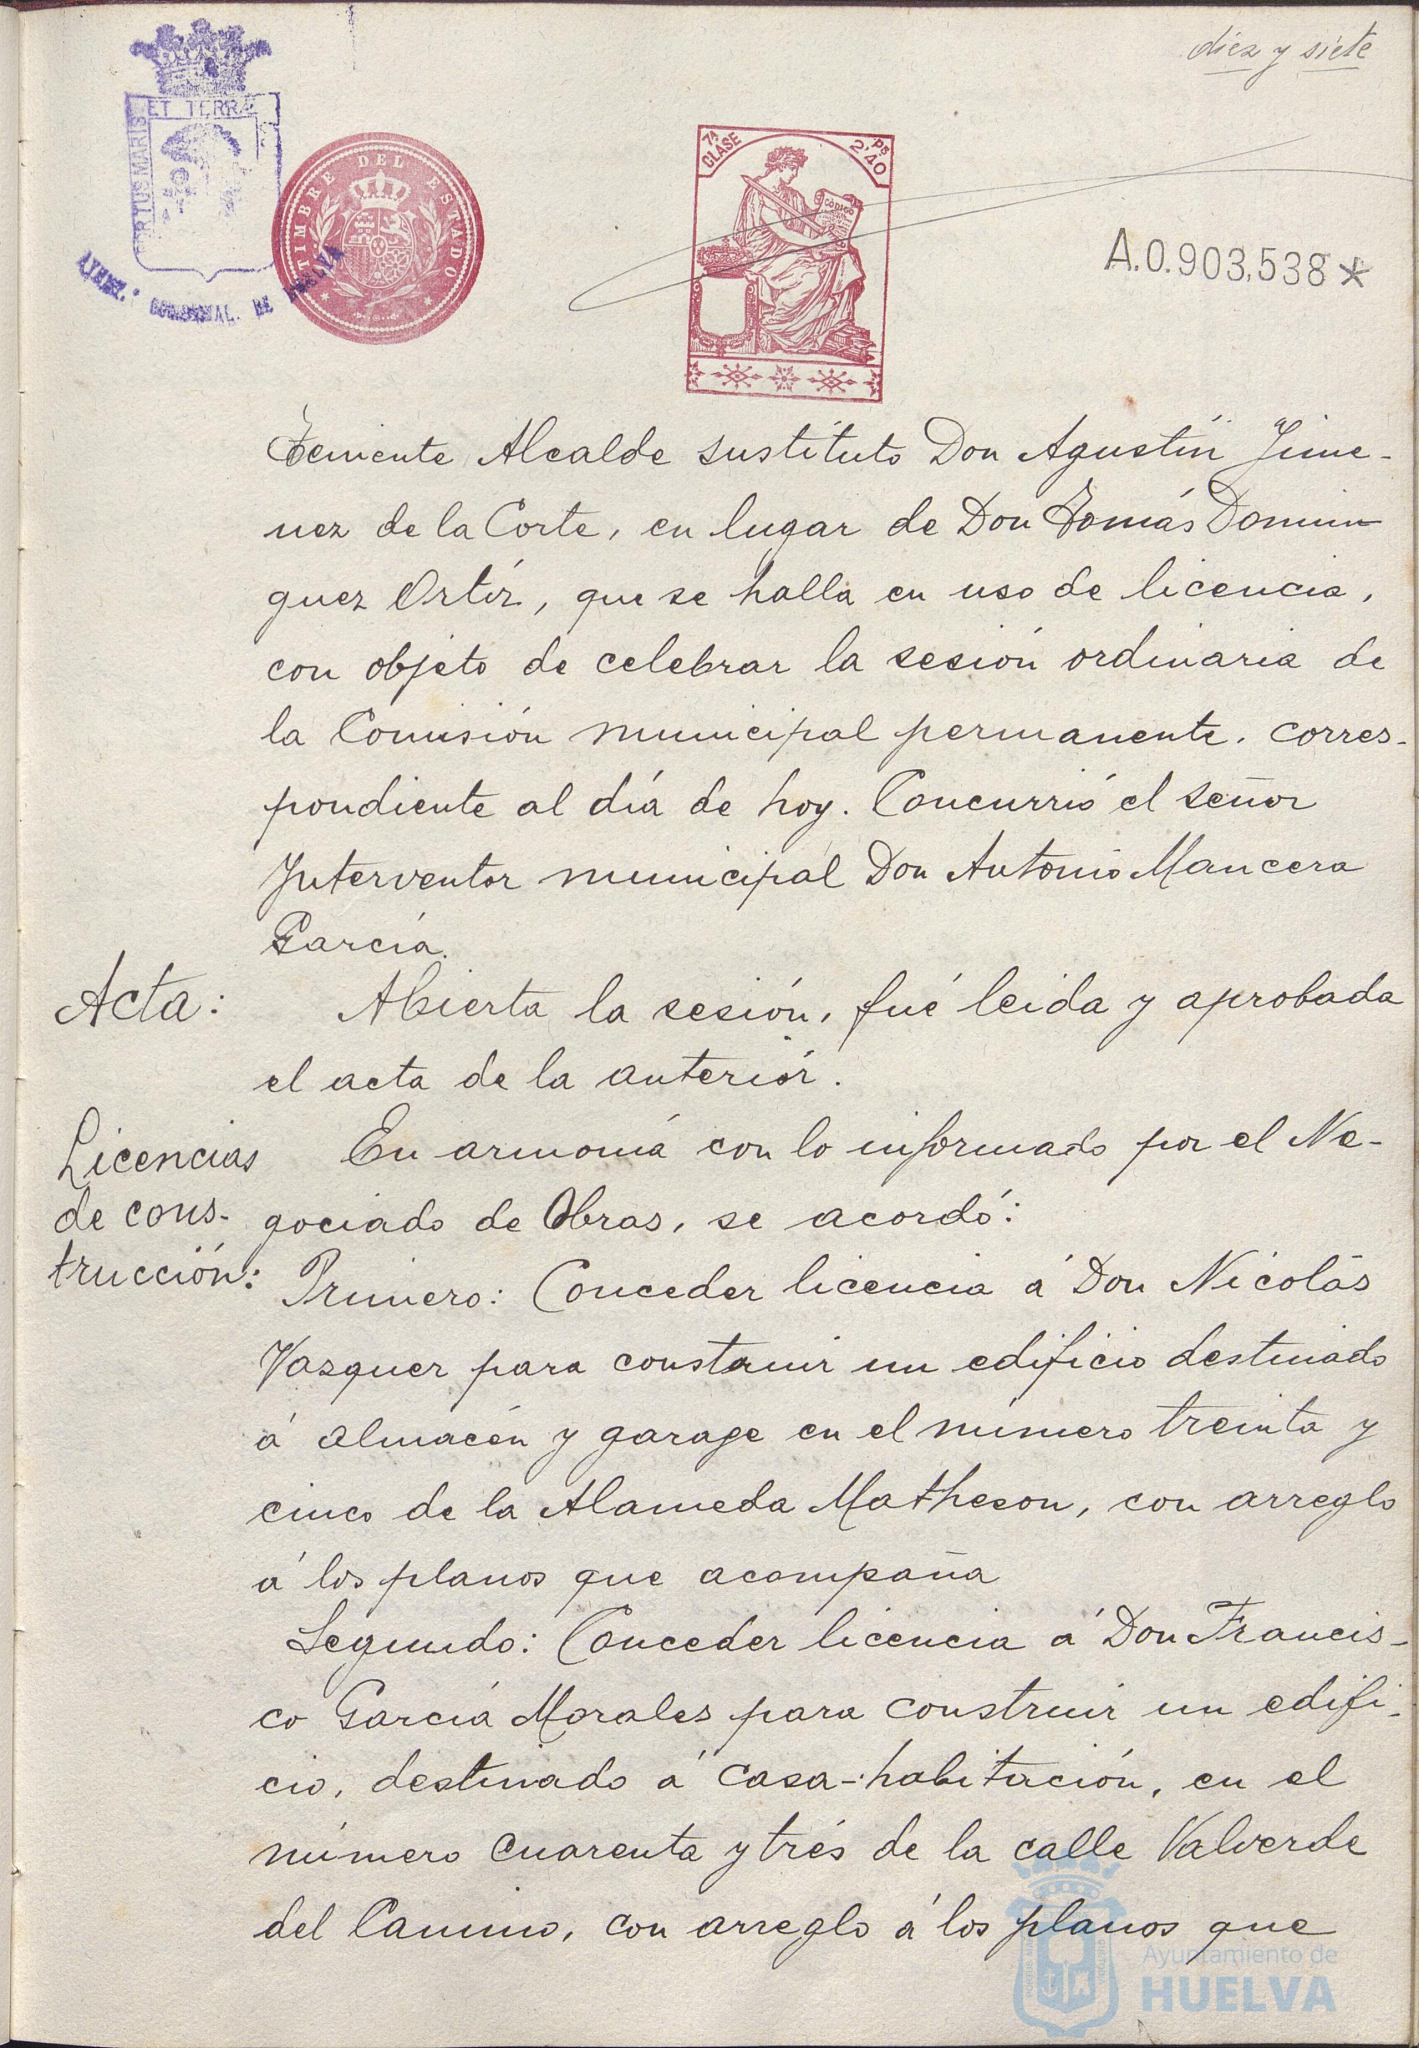 diez y siete
ET TERRAE
PORTUS MARIS
TIMBRE DEL ESTADO
7ª CLASE
Ps 2'40
CODIGO
A.0.903,538*
DE HUELVA
Teniente Alcalde sustituto Don Agustín Jime-
nez de la Corte, en lugar de Don Tomás Domin
guez Ortíz, que se halla en uso de licencia,
con objeto de celebrar la sesión ordinaria de
la Comisión municipal permanente, corres-
pondiente al día de hoy. Concurrió el señor
Interventor municipal Don Antonio Mancera
García.
Acta:
Abierta la sesión, fué leida y aprobada
el acta de la anteriór.
Licencias
de cons-
trucción:
En armoniá con lo informado por el Ne-
gociado de Obras, se acordó:
Primero: Conceder licencia á Don Nicolás
Vazquez para construir un edificio destinado
á almacén y garage en el número treinta y
cinco de la Alameda Matheson, con arreglo
á los planos que acompaña
Segundo: Conceder licencia á Don Francis-
co García Morales para construir un edifi-
cio, destinado á casa-habitación, en el
número cuarenta y trés de la calle Valverde
del Camino, con arreglo á los planos que
Ayuntamiento de
HUELVA